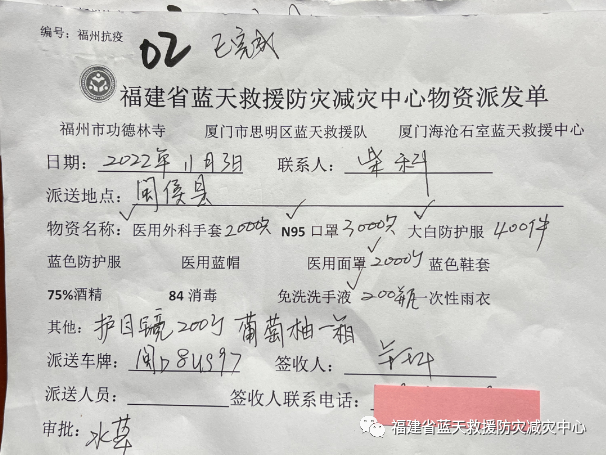 编号：福州抗疫 02 已完成
福建省蓝天救援防灾减灾中心物资派发单
福州市功德林寺 厦门市思明区蓝天救援队 厦门海沧石室蓝天救援中心
日期：2022年11月3日 联系人：柴科
派送地点：闽侯县
物资名称：医用外科手套2000只 N95口罩3000只 大白防护服400件
蓝色防护服 医用蓝帽 医用面罩2000个 蓝色鞋套
75%酒精 84消毒 免洗洗手液200瓶 一次性雨衣
其他：护目镜200个 葡萄柚一箱
派送车牌：闽D8US97 签收人：
派送人员： 签收人联系电话：
审批：水草
福建省蓝天救援防灾减灾中心